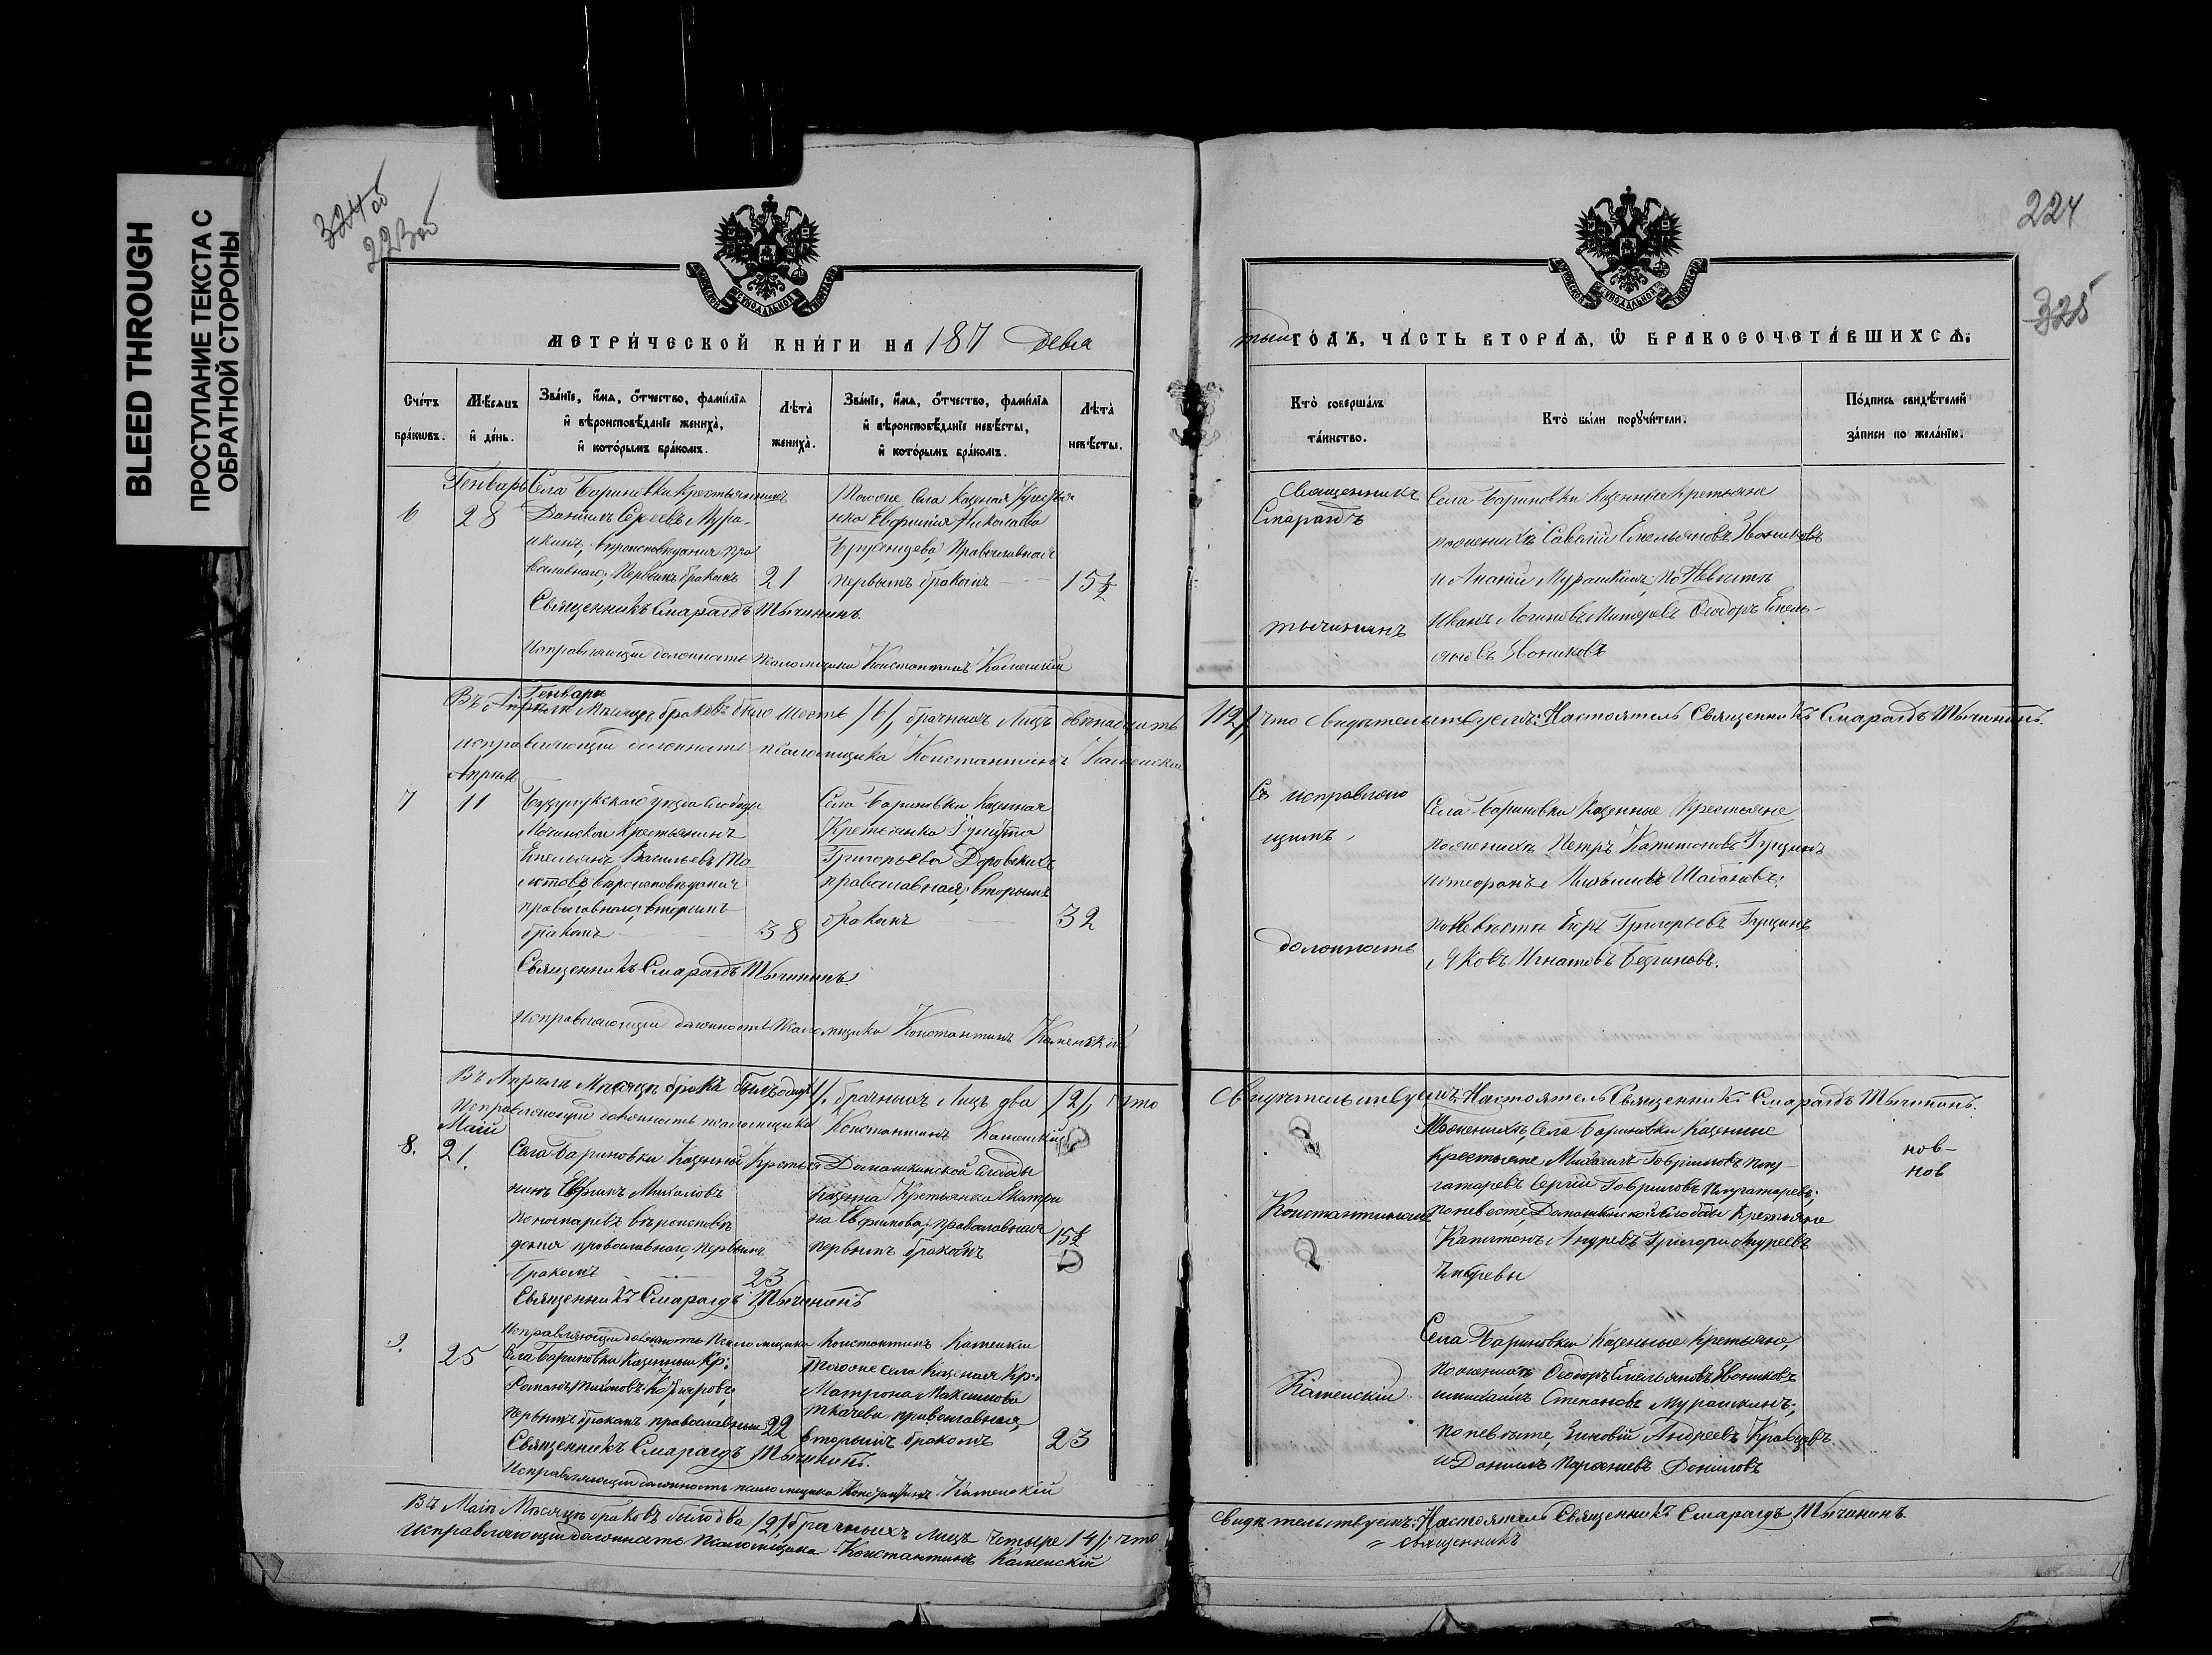 BLEED THROUGH
ПРОСТУПАНИЕ ТЕКСТА С
ОБРАТНОЙ СТОРОНЫ
324об
223об
МЕТРИ́ЧЕСКОЙ КНИ́ГИ НА 187 девя
Сче́тъ бра́кѡвъ.
Мѣ́сяцъ и҆ де́нь.
Зва́нїе, и҆́мя, ѻ҆́тчество, фами́лїя и҆ вѣроисповѣ́данїе жениха̀, и҆ кото́рымъ бра́комъ.
Лѣта̀ жениха̀.
Зва́нїе, и҆́мя, ѻ҆́тчество, фами́лїя и҆ вѣроисповѣ́данїе невѣ́сты, и҆ кото́рымъ бра́комъ.
Лѣта̀ невѣ́сты.
Генварь
6
28
Села Бариновки Крестьянинъ
Данiилъ Сергеевъ Мура-
шкинъ, вѣроисповѣданiя пра
вославнаго, Первымъ бракомъ
21
Тогоже Села Казенная Крестья
нка Евфимiя Николаева
Православная
первымъ бракомъ
15½
Священникъ Смарагдъ Тычининъ.
Исправляющiй должность псаломщика Константинъ Каменскiй
Генварѣ
Въ Мѣсяцѣ браковъ было шесть /6/, брачныхъ Лицъ двенадцать
исправляющiй должность псаломщика Константинъ Каменскiй
Апрѣль
7
11
Бузулукскаго уѣзда слободы
Крестьянинъ
Емельянъ Васильевъ
вѣроисповѣданiя
православнаго, вторымъ
бракомъ
38
Села Бариновки Казенная
Крестьянка
Григорьева Доровскихъ
православная, вторымъ
бракомъ
32
Священникъ Смарагдъ Тычининъ.
Исправляющiй должность Псаломщика Константинъ Каменскiй
Въ Апрѣлѣ Мѣсяцѣ бракъ былъ одинъ /1/, брачныхъ Лицъ два /2/, что
Исправляющiй должность псаломщика Константинъ Каменскiй
Маiй
8.
21.
Села Бариновки Казенный Крестья
нинъ Ефимъ Михаловъ
Пономаревъ вѣроисповѣ
данiя православнаго, первымъ
бракомъ
23
Домашкинской слободы
Казенна Крестьянка Екатери
на Евфимова, православная
первымъ бракомъ
15½
Священникъ Смарагдъ Тычининъ
Исправляющiй должность Псаломщика Константинъ Каменскiй
9.
25
Села Бариновки Казенный Кр:
Романъ
первымъ бракомъ православный
22
Тогоже села Казенная Кр:
Матрона Максимова
Ткачева православная,
вторымъ бракомъ
23
Священникъ Смарагдъ Тычининъ.
Исправляющiй должность псаломщика Константинъ Каменскiй
Въ Маiѣ Мѣсяцѣ браковъ было два /2/, брачныхъ лицъ четыре /4/; что
исправляющiй должность псаломщика Константинъ Каменскiй
224
325
тый ГО́ДЪ, ЧА́СТЬ ВТОРА́Я, Ѡ҆ БРАКОСОЧЕТА́ВШИХСЯ.
Кто̀ соверша́лъ та́инство.
Кто̀ бы́ли порꙋчи́тели.
По́дпись свидѣ́телей за́писи по жела́нїю.
Священникъ
Смарагдъ
Тычининъ
Села Бариновки Казенные Крестьяне
по женихѣ Савелiй Емельяновъ Звониковъ
и Ананiй Мурашкинъ, по Невѣстѣ
Иванъ Ѳеодоръ Емель-
яновъ Звониковъ
/12/, что свидѣтельствуемъ: Настоятель Священникъ Смарагдъ Тычининъ.
Съ исправляю
щимъ
должность
Села Бариновки Казенные Крестьяне
по женихѣ Петръ Капитоновъ Гущинъ
Шабановъ;
по Невѣстѣ Григорьевъ Гущинъ
Яковъ Игнатовъ
Свидѣтельствуемъ: Настоятель Священникъ Смарагдъ Тычининъ.
Константиномъ
По женихѣ, Села Бариновки Казенные
крестьяне Михаилъ Гавриловъ
Сергiй Гавриловъ
по невестѣ, Домашкинской слободы Крестьяне
Капитонъ Андреевъ Григорiй Андреевъ
нов-
нов
Каменскiй
Села Бариновки Казенные Крестьяне,
по женихѣ Ѳеодоръ Емельяновъ Звониковъ
и Михаилъ Степановъ Мурашкинъ;
по невѣстѣ, Зиновiй Андреевъ Кравцовъ
и Данiилъ Данiиловъ
свидѣтельствуемъ: Настоятель Священникъ Смарагдъ Тычининъ.
= священникъ